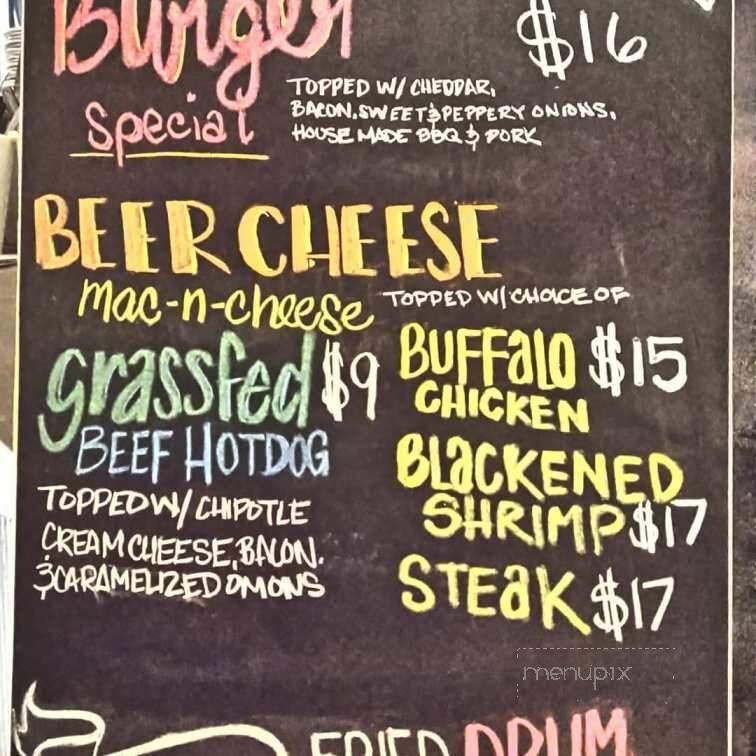 Burger $16
Special
TOPPED W/ CHEDDAR,
BACON, SWEET & PEPPERY ONIONS,
HOUSE MADE BBQ & PORK
BEER CHEESE
mac-n-cheese TOPPED W/ CHOICE OF
BUFFALO $15
CHICKEN
BLACKENED
SHRIMP $17
STEAK $17
grassfed $9
BEEF HOTDOG
TOPPED W/ CHIPOTLE
CREAM CHEESE, BACON.
& CARAMELIZED ONIONS
FRIED DRUM
menupix